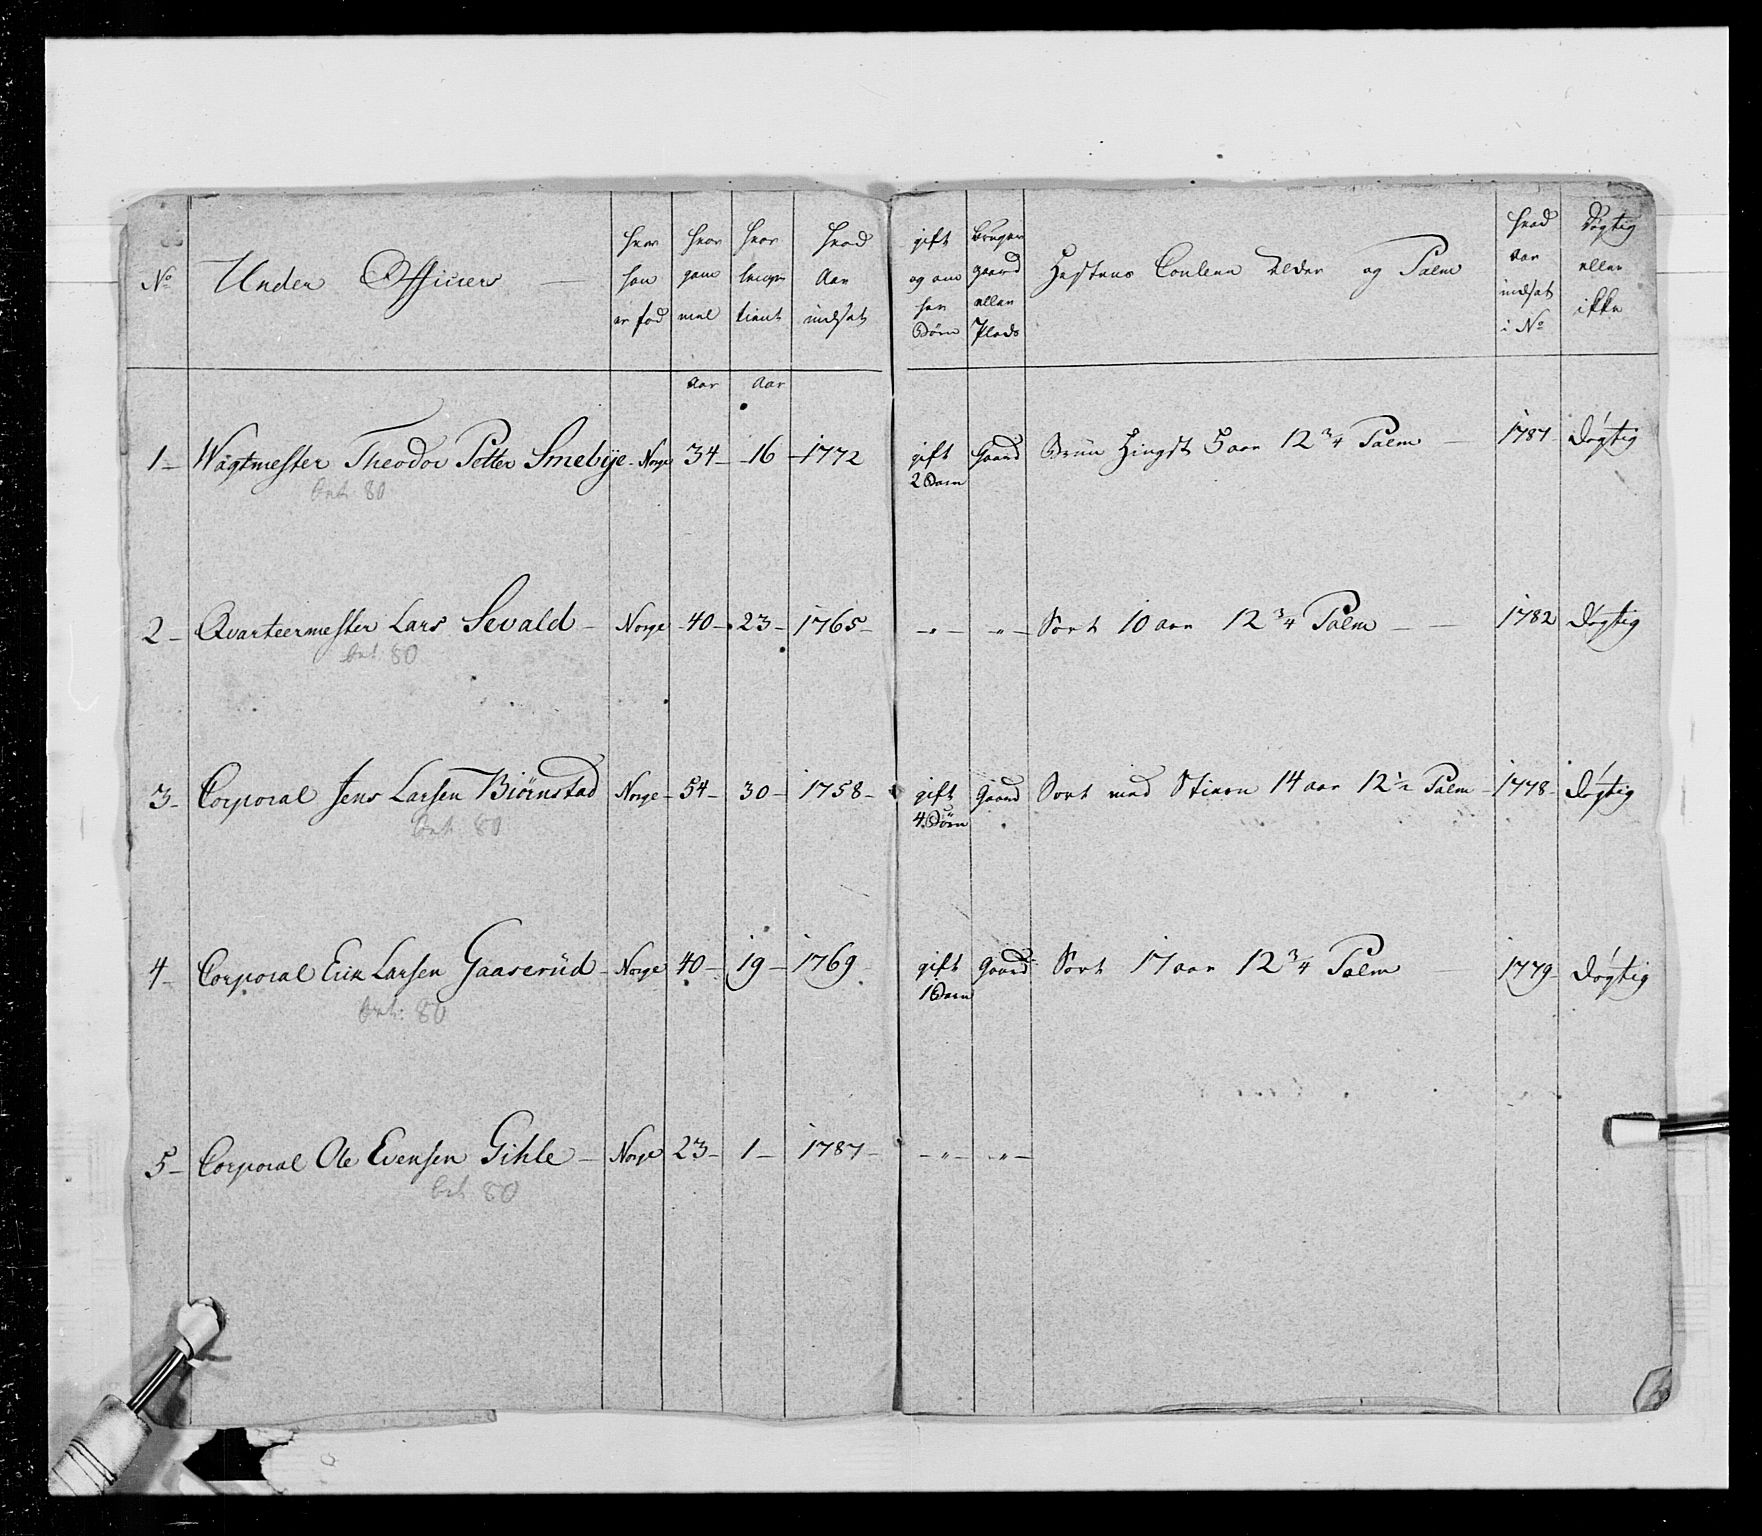 No Under Officiers — hvor han er fød hvor gam mel hvor længe tient hvad Aar indsat gift og om har Børn bruger gaard eller Plads Hestens Couleur Alder og Palm hvad aar indsat i No Døgtig eller ikke
aar aar
1 – Wagtmester Theodor Petter Smebye – Norge 34 – 16 – 1772 gift 2 Børn Gaard Brun Hingst 5 aar 12 3/4 Palm – 1787 Døgtig
80
2 – Qvarteermester Lars Sevald – Norge 40 – 23 – 1765 – – " – – " – Sort 10 aar 12 3/4 Palm – – 1782 Døgtig
80
3 – Corporal Jens Larsen Biörnstad Norge – 54 – 30 – 1758 – gift 4 Børn Gaard Sort med Stiern 14 aar 12 1/2 Palm – 1778 – Døgtig
80
4 – Corporal Erik Larsen Gaaserüd – Norge 40 – 19 – 1769 gift 1 Barn Gaard Sort 17 aar 12 3/4 Palm 1779 – Døgtig
80
5 – Corporal Ole Evensen Gihle – Norge 23 – 1 – 1787 – – " – – " –
80